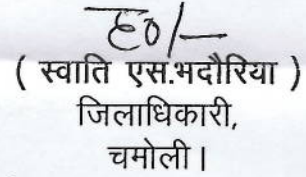 ह०/-
( स्वाति एस.भदौरिया )
जिलाधिकारी,
चमोली।